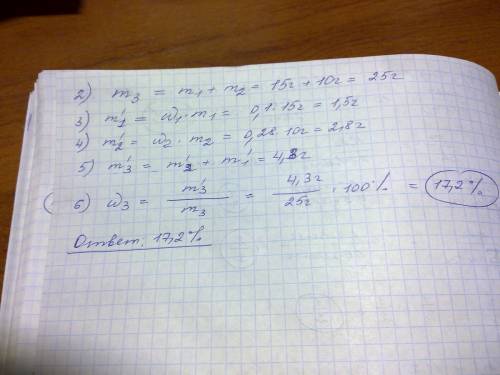 2) m₃ = m₁ + m₂ = 15г + 10г = 25г
3) m₁' = ω₁ · m₁ = 0,1 · 15г = 1,5г
4) m₂' = ω₂ · m₂ = 0,28 · 10г = 2,8г
5) m₃' = m₂' + m₁' = 4,3г
6) ω₃ = m₃' / m₃ = 4,3г / 25г · 100% = 17,2%
Ответ: 17,2%